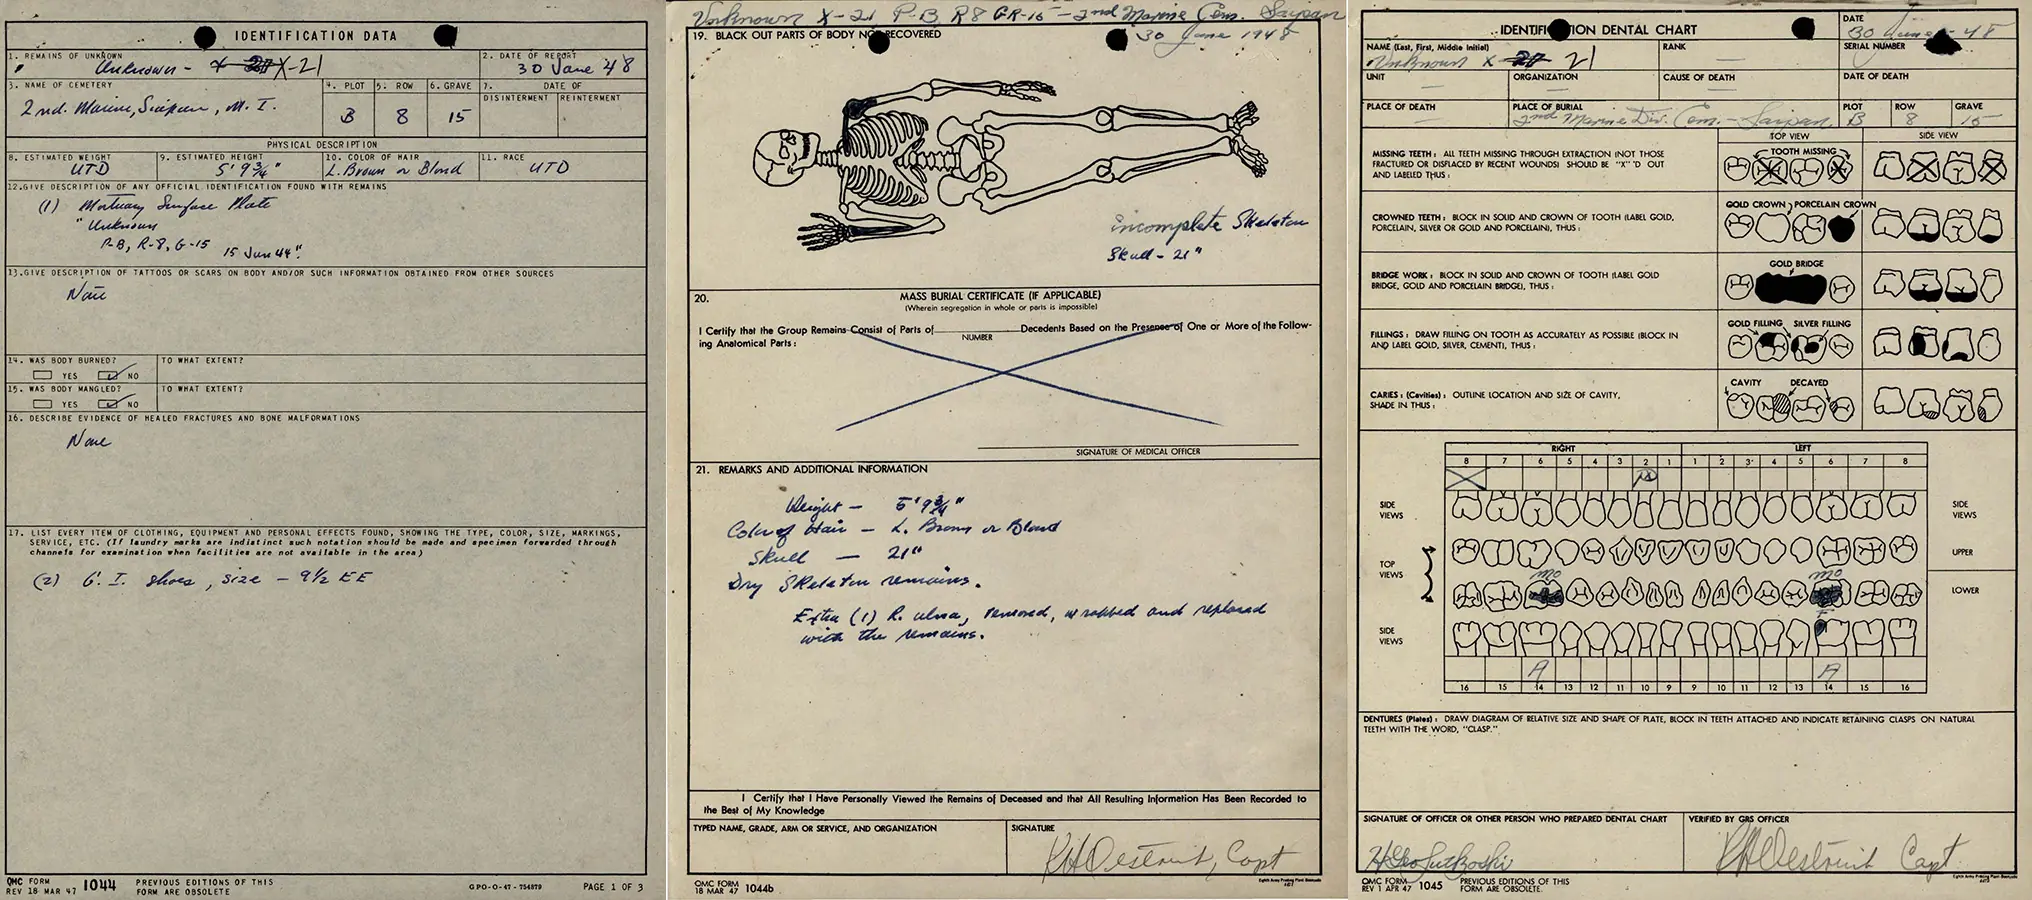 IDENTIFICATION DATA
1. REMAINS OF UNKNOWN
Unknown - X-21
2. DATE OF REPORT
30 June 48
3. NAME OF CEMETERY
2nd. Marine, Saipan, M. I.
4. PLOT
B
5. ROW
8
6. GRAVE
15
7. DATE OF
DISINTERMENT
REINTERMENT
PHYSICAL DESCRIPTION
8. ESTIMATED WEIGHT
UTD
9. ESTIMATED HEIGHT
5' 9 3/4"
10. COLOR OF HAIR
L. Brown or Blond
11. RACE
UTD
12. GIVE DESCRIPTION OF ANY OFFICIAL IDENTIFICATION FOUND WITH REMAINS
(1) Mortuary Surface Plate
"Unknown
P-B, R-8, G-15 15 Jun 44".
13. GIVE DESCRIPTION OF TATTOOS OR SCARS ON BODY AND/OR SUCH INFORMATION OBTAINED FROM OTHER SOURCES
None
14. WAS BODY BURNED?
YES NO
TO WHAT EXTENT?
15. WAS BODY MANGLED?
YES NO
TO WHAT EXTENT?
16. DESCRIBE EVIDENCE OF HEALED FRACTURES AND BONE MALFORMATIONS
None
17. LIST EVERY ITEM OF CLOTHING, EQUIPMENT AND PERSONAL EFFECTS FOUND, SHOWING THE TYPE, COLOR, SIZE, MARKINGS,
SERVICE, ETC. (If laundry marks are indistinct such notation should be made and specimen forwarded through
channels for examination when facilities are not available in the area)
(2) G. I. shoes, size - 9 1/2 EE
QMC FORM
REV 18 MAR 47 1044
PREVIOUS EDITIONS OF THIS
FORM ARE OBSOLETE
GPO-O-47-754879
PAGE 1 OF 3
Unknown X-21 P-B, R8 GR-15 - 2nd Marine Cem. Saipan
19. BLACK OUT PARTS OF BODY NOT RECOVERED
30 June 1948
incomplete Skeleton
Skull - 21"
20.
MASS BURIAL CERTIFICATE (IF APPLICABLE)
(Wherein segregation in whole or parts is impossible)
I Certify that the Group Remains Consist of Parts of Decedents Based on the Presence of One or More of the Follow-
NUMBER
ing Anatomical Parts:
SIGNATURE OF MEDICAL OFFICER
21. REMARKS AND ADDITIONAL INFORMATION
Height - 5' 9 3/4"
Color of Hair - L. Brown or Blond
Skull - 21"
Dry Skeleton remains.
Extra (1) R. ulna, removed, wrapped and replaced
with the remains.
I Certify that I Have Personally Viewed the Remains of Deceased and that All Resulting Information Has Been Recorded to
the Best of My Knowledge
TYPED NAME, GRADE, ARM OR SERVICE, AND ORGANIZATION
SIGNATURE
Capt
QMC FORM
18 MAR 47 1044b
IDENTIFICATION DENTAL CHART
DATE
30 June 48
NAME (Last, First, Middle Initial)
Unknown X 21
RANK
SERIAL NUMBER
UNIT
ORGANIZATION
CAUSE OF DEATH
DATE OF DEATH
PLACE OF DEATH
PLACE OF BURIAL
2nd Marine Div. Cem. - Saipan
PLOT
B
ROW
8
GRAVE
15
TOP VIEW
SIDE VIEW
MISSING TEETH: ALL TEETH MISSING THROUGH EXTRACTION (NOT THOSE
FRACTURED OR DISPLACED BY RECENT WOUNDS) SHOULD BE "X" 'D OUT
AND LABELED THUS:
TOOTH MISSING
CROWNED TEETH: BLOCK IN SOLID AND CROWN OF TOOTH (LABEL GOLD,
PORCELAIN, SILVER OR GOLD AND PORCELAIN), THUS:
GOLD CROWN PORCELAIN CROWN
BRIDGE WORK: BLOCK IN SOLID AND CROWN OF TOOTH (LABEL GOLD
BRIDGE, GOLD AND PORCELAIN BRIDGE), THUS:
GOLD BRIDGE
FILLINGS: DRAW FILLING ON TOOTH AS ACCURATELY AS POSSIBLE (BLOCK IN
AND LABEL GOLD, SILVER, CEMENT), THUS:
GOLD FILLING SILVER FILLING
CARIES: (Cavities): OUTLINE LOCATION AND SIZE OF CAVITY,
SHADE IN THUS:
CAVITY DECAYED
RIGHT LEFT
8 7 6 5 4 3 2 1 1 2 3 4 5 6 7 8
SIDE VIEWS
SIDE VIEWS
TOP VIEWS
UPPER
mo mo
LOWER
SIDE VIEWS
SIDE VIEWS
A A
16 15 14 13 12 11 10 9 9 10 11 12 13 14 15 16
DENTURES (Plates): DRAW DIAGRAM OF RELATIVE SIZE AND SHAPE OF PLATE, BLOCK IN TEETH ATTACHED AND INDICATE RETAINING CLASPS ON NATURAL
TEETH WITH THE WORD, "CLASP."
SIGNATURE OF OFFICER OR OTHER PERSON WHO PREPARED DENTAL CHART
VERIFIED BY GRS OFFICER
Capt
QMC FORM
REV 1 APR 47 1045
PREVIOUS EDITIONS OF THIS
FORM ARE OBSOLETE.